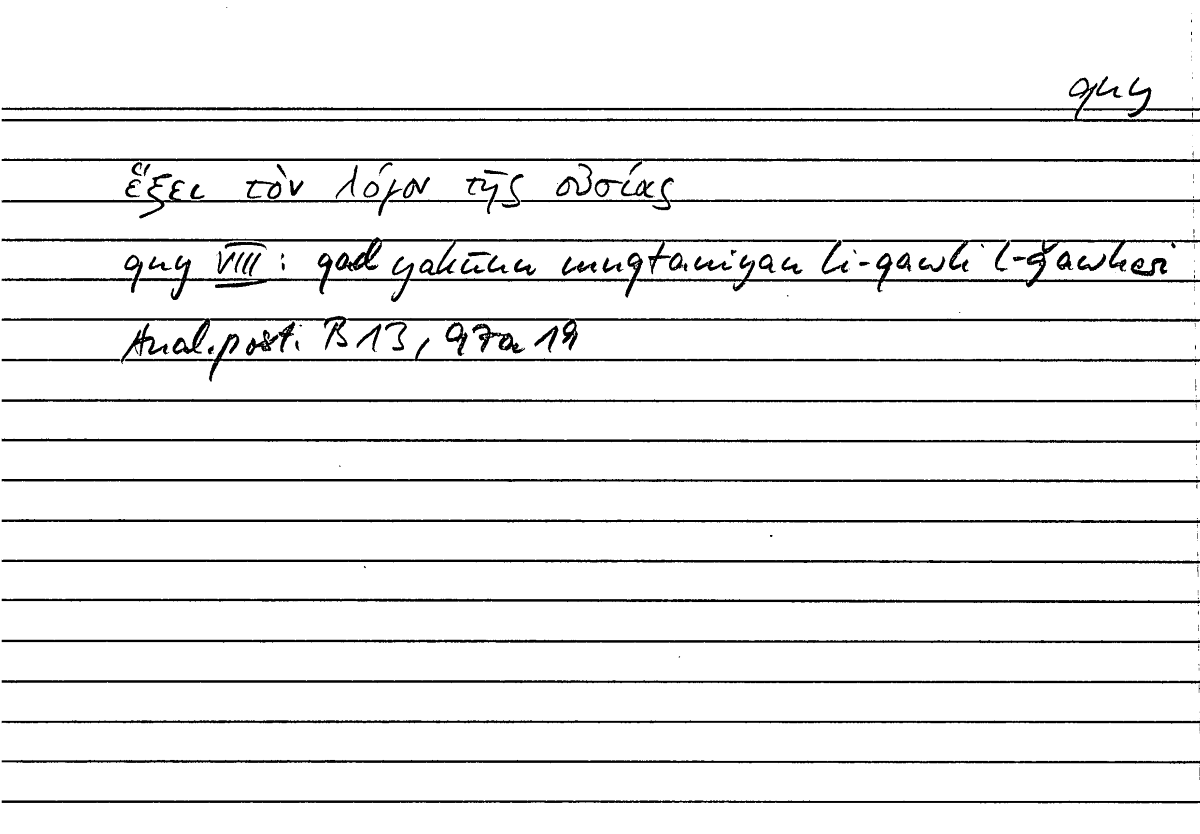 qny
ἕξει τὸν λόγον τῆς οὐσίας
qny VIII : qad yakūnu muqtaniyan li-qawli l-ǧawhari
Anal. post. B 13, 97a 19